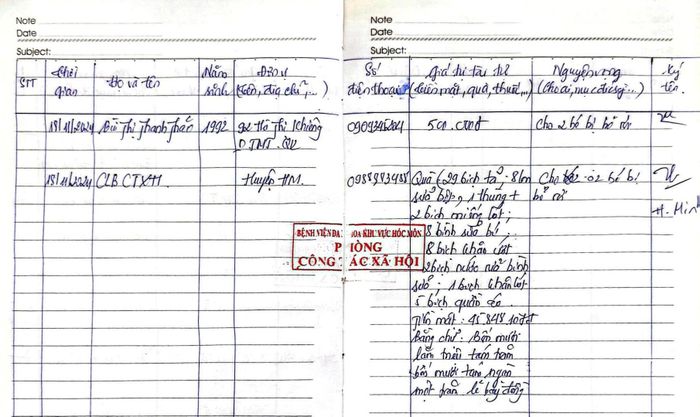 Note
Date
Subject:
STT Thời gian Họ và tên Năm sinh Đơn vị (Tên, địa chỉ,...)
18/11/2024 Thị Thanh 1992 92 Hồ Thị
18/11/2024 CLB CTXH. Huyện HM.
Note
Date
Subject:
Số điện thoại Giá trị tài trợ (tiền mặt, quà, thuốc...) Nguyện vọng (Cho ai, mục đích gì...) Ký tên.
500.000đ Cho 2 bé bị bỏ rơi
Quà (29 bịch tã, 8 lon Cho 02 bé bị
sữa bột, 1 thùng + bỏ rơi
2 bịch miếng lót; H. Minh
8 bình sữa bú;
8 bịch khăn ướt
2 bịch nước rửa bình
sữa; 1 bịch khăn lót
5 bịch quần áo.
Tiền mặt:
Bằng chữ: Bốn mươi
lăm triệu tám trăm
bốn mươi tám ngàn
một trăm lẻ bảy đồng
BỆNH VIỆN ĐA KHOA KHU VỰC HÓC MÔN
PHÒNG
CÔNG TÁC XÃ HỘI